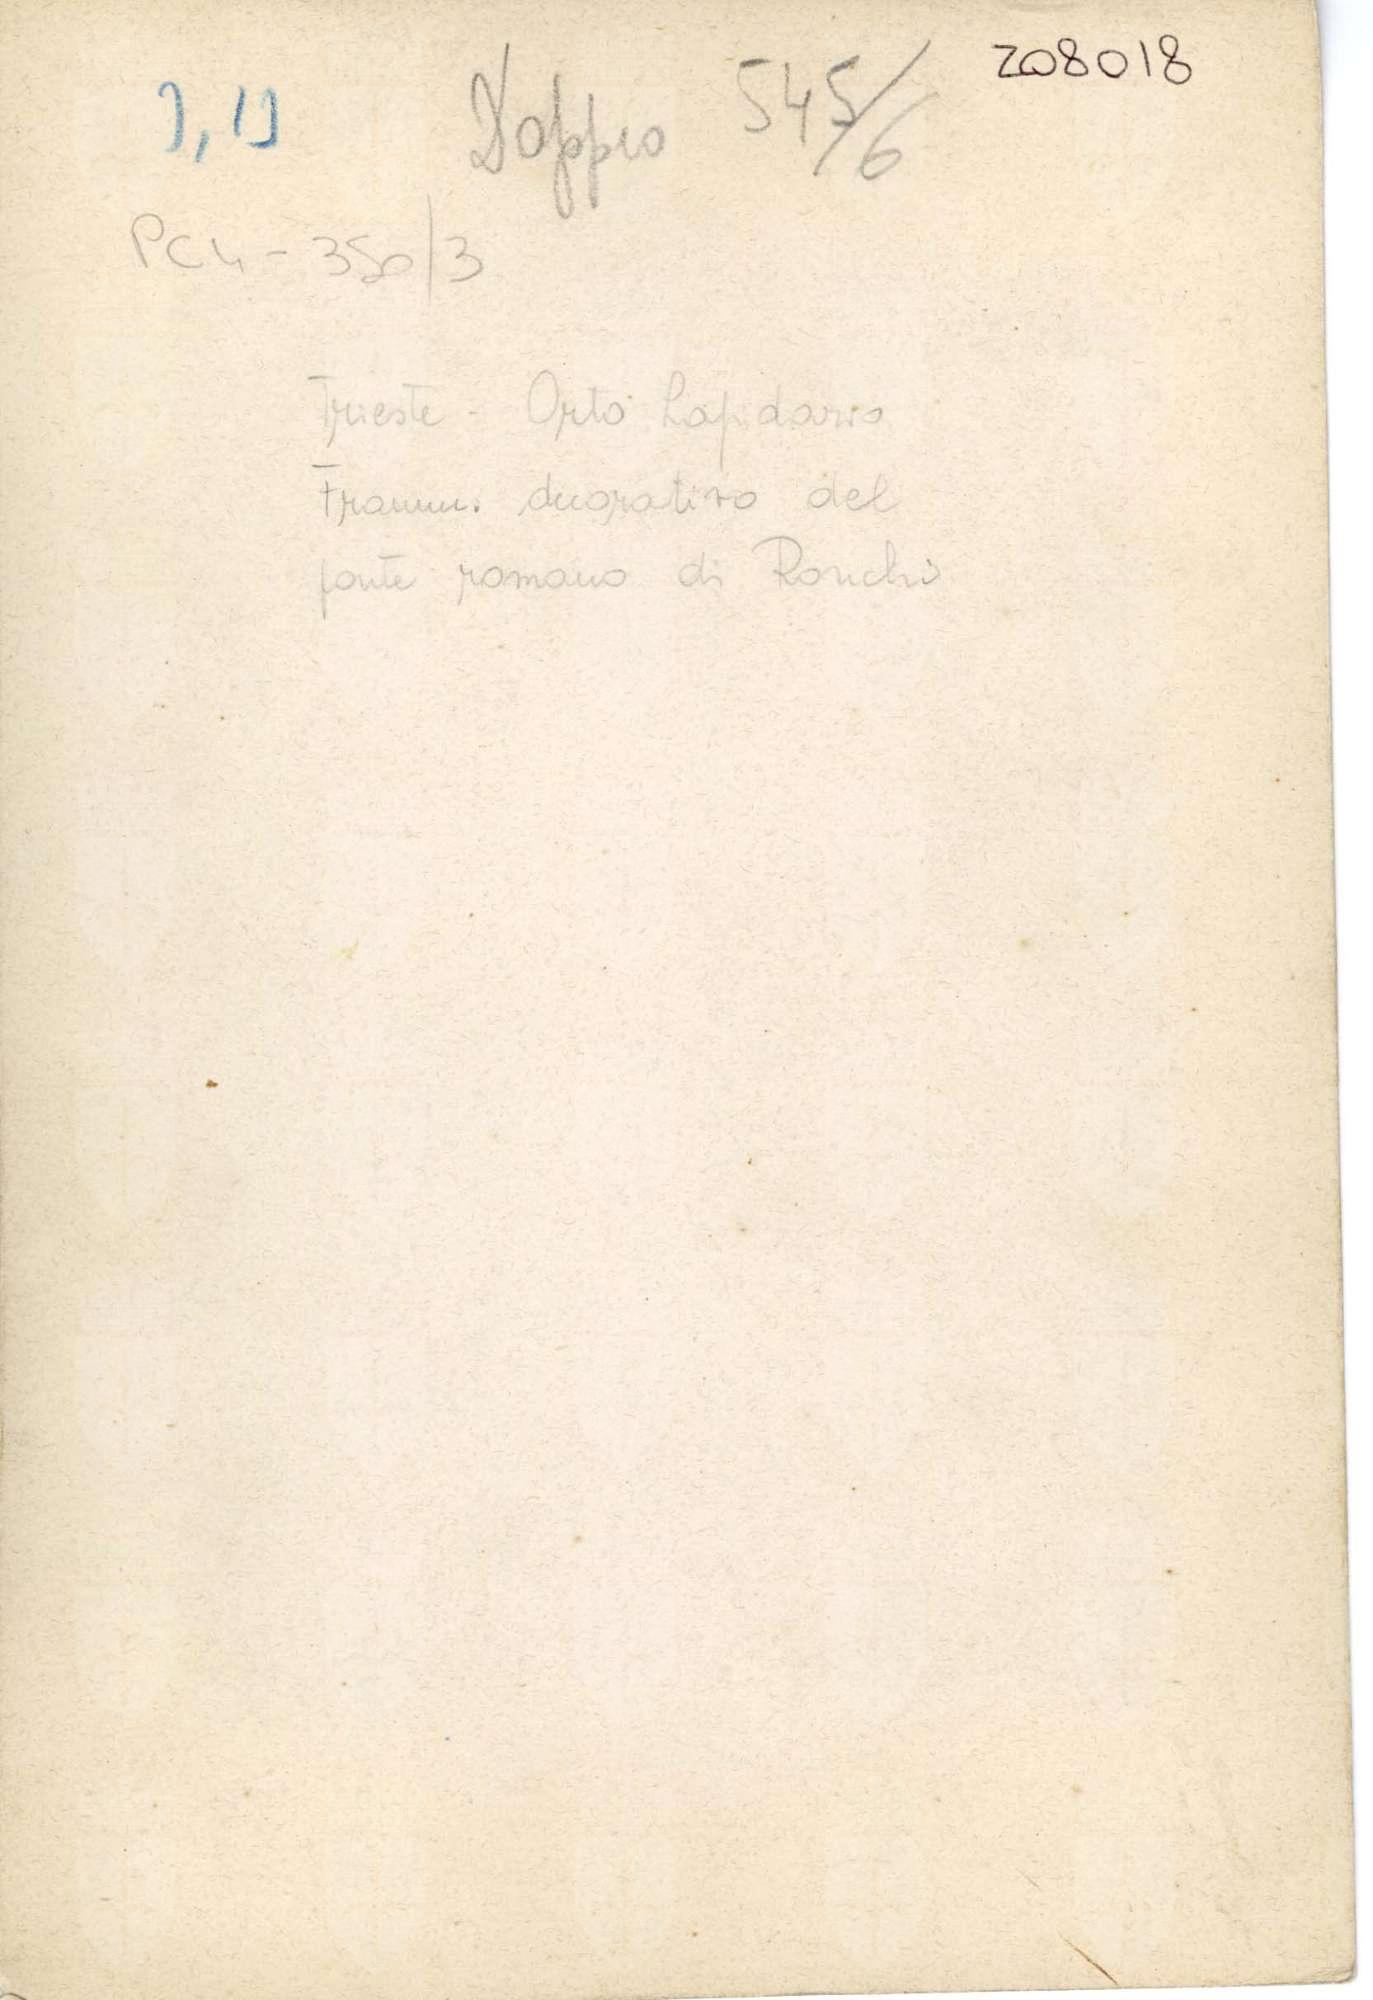 Doppio 545/6 z08018
PC4-350/3
Trieste - Orto Lapidario
Framm. decorativo del
ponte romano di Ronchi